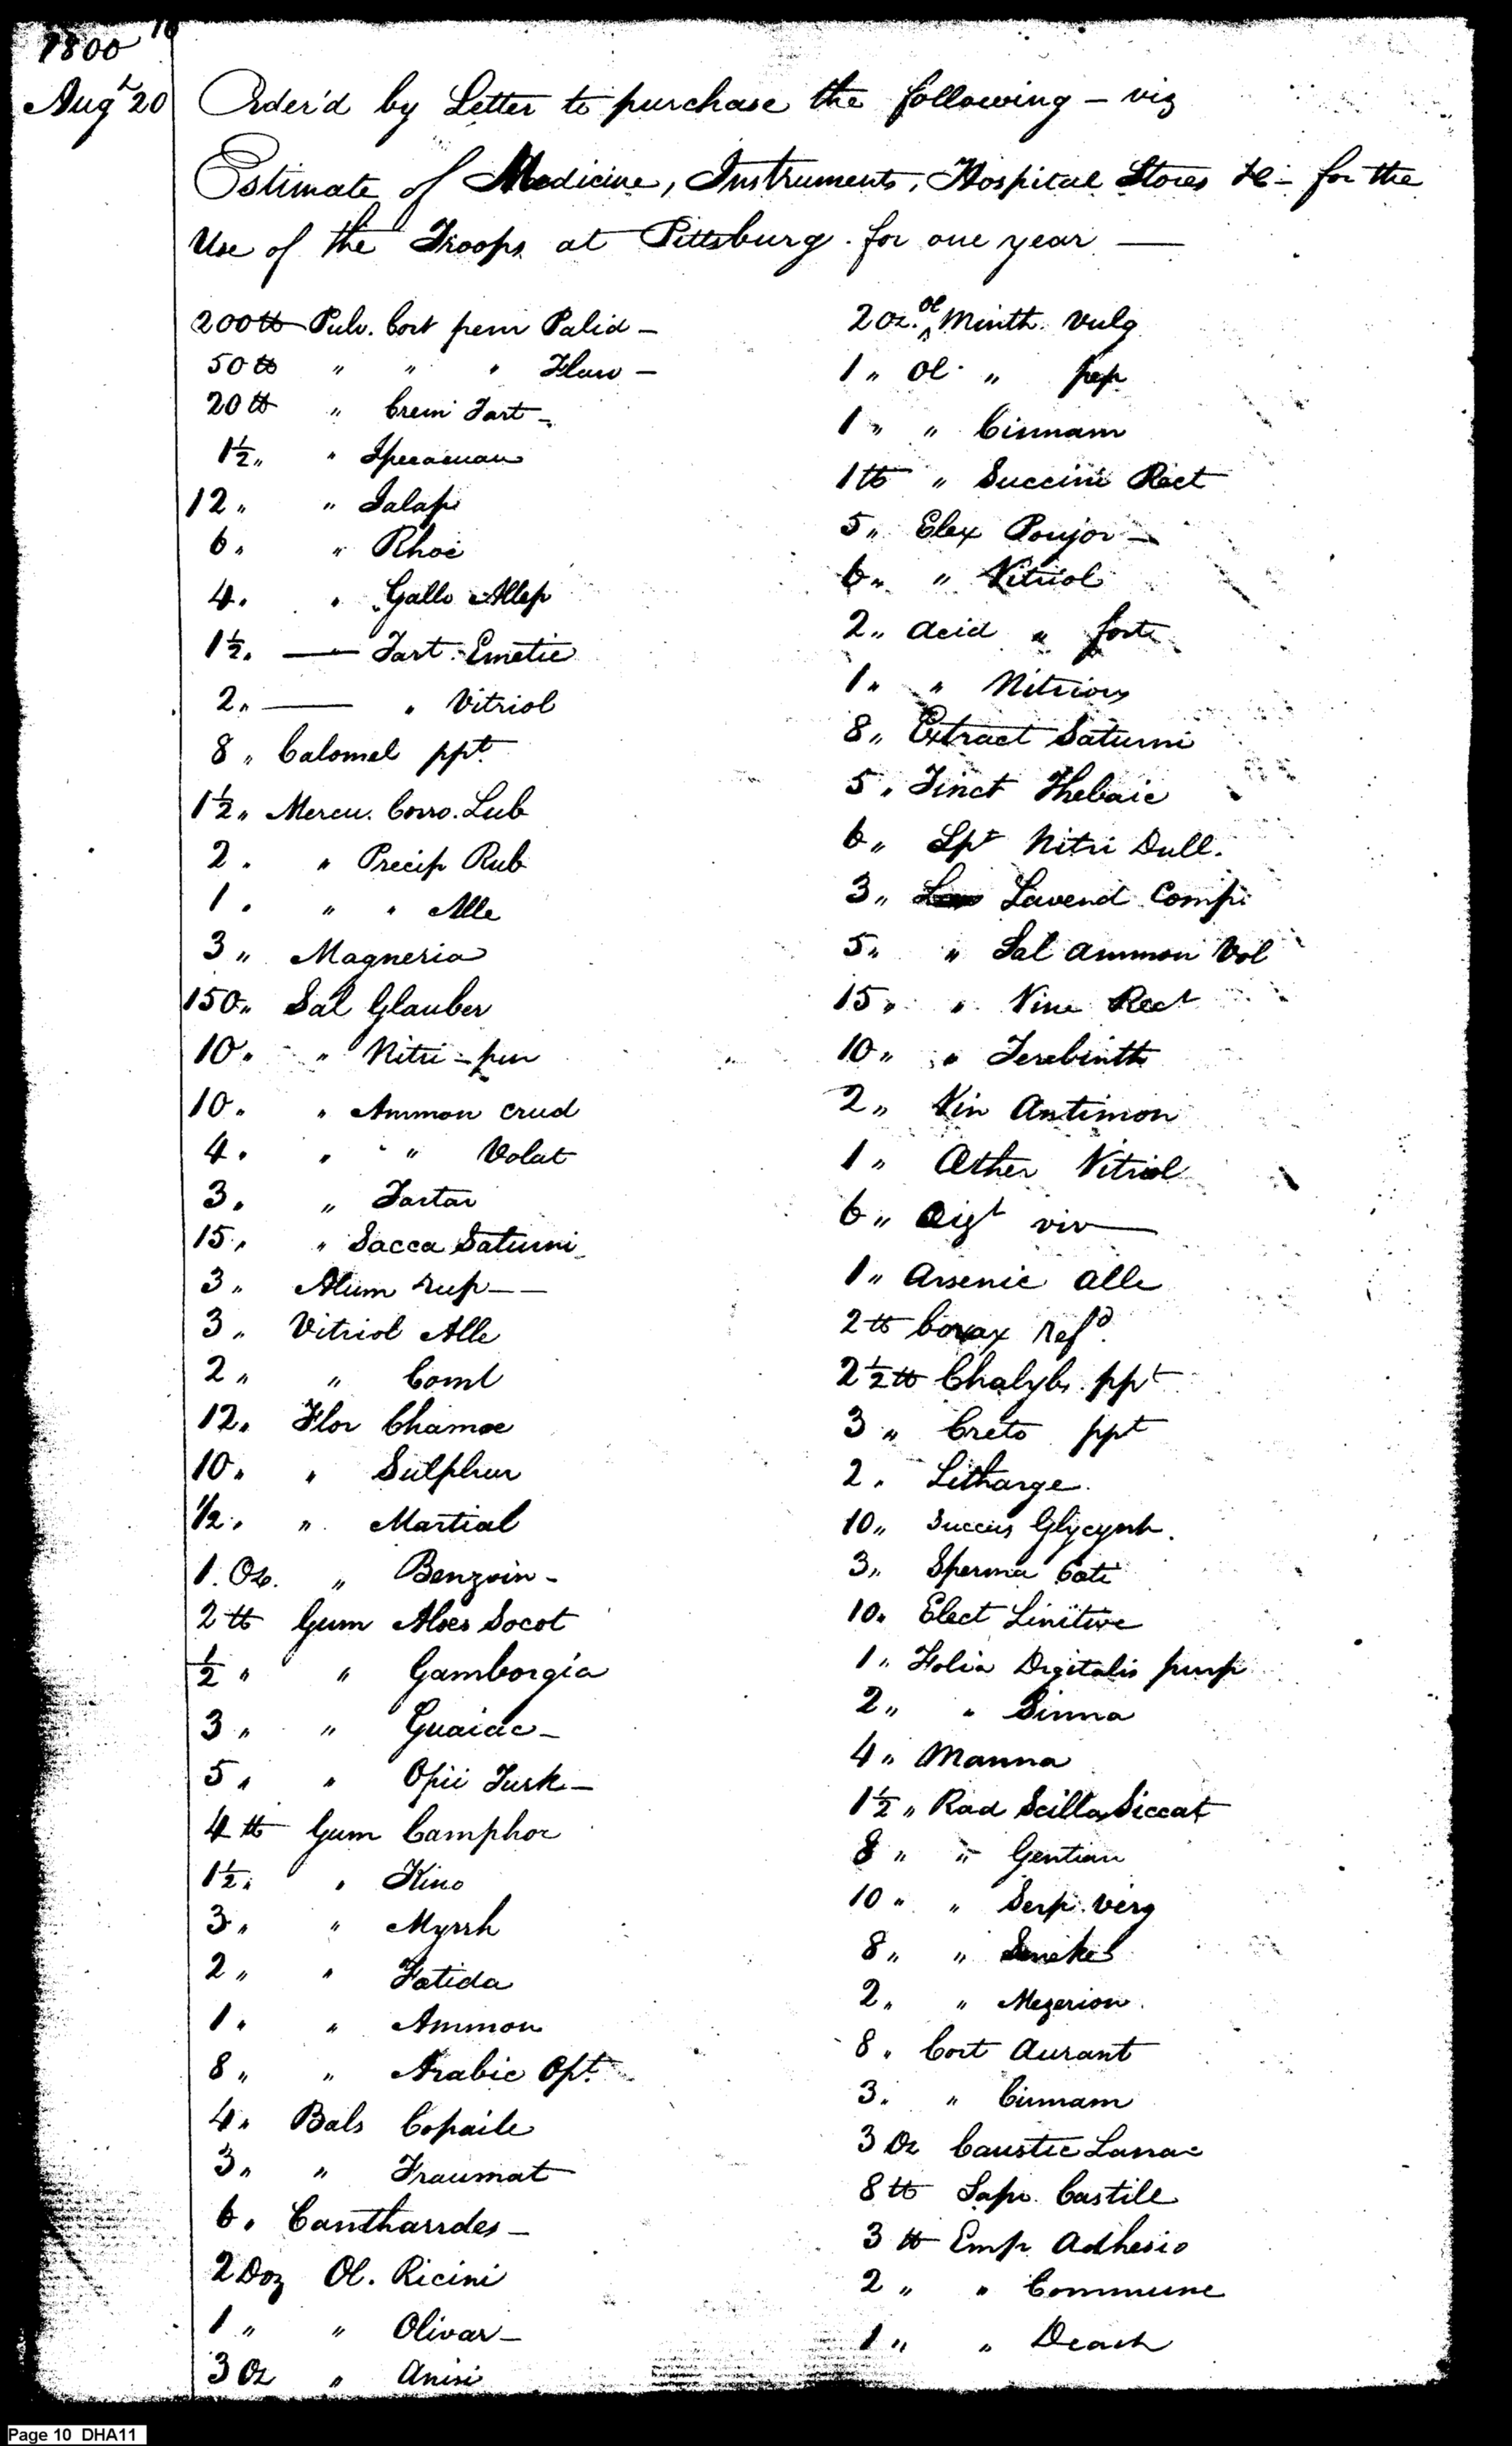 1800
Augt 20
Order'd by Letter to purchase the following – viz
Estimate of Medicine, Instruments, Hospital Stores &c – for the
Use of the Troops at Pittsburg for one year —
200 ℔ Pulv. Cort peru Palid –
50 ℔ " " " Flav –
20 ℔ " Cremi Tart –
1½ " " Ipecacuan
12 " " Jalap
6 " " Rhoei
4 " " Gallo Allep
1½ " — Tart. Emetic
2 " — " Vitriol
8 " Calomel ppt.
1½ " Mercu. Corro. Sub
2 " " Precip Rub
1 " " " Alle
3 " Magneria
150 " Sal Glauber
10 " " Nitri – pur
10 " " Ammon crud
4 " " " Volat
3 " " Tartar
15 " " Sacca Saturni
3 " Alum rup – –
3 " Vitriol Alle
2 " " Coml
12 " Flor Chamoe
10 " " Sulphur
1/2 " " Martial
1. Oz. " Benzoin –
2 ℔ Gum Aloes Socot
½ " " Gamborgia
3 " " Guaiac –
5 " " Opii Turk –
4 ℔ Gum Camphor
1½ " " Kino
3 " " Myrrh
2 " " Fatida
1 " " Ammon
8 " " Arabic Opt.
4 " Bals Copaile
3 " " Traumat
6 " Cantharrdes –
2 Doz Ol. Ricini
1 " " Olivar –
3 Oz " Anisi
2 oz. ol Minth. Vulg
1 " Ol " pep
1 " " Cinnam
1 ℔ " Succini Rect
5 " Elex Poujor –
6 " " Vitriol
2 " Acid " forte
1 " " Nitrious
8 " Extract Saturni
5 " Tinct Thebaic
6 " Spt Nitri Dull.
3 " Lavend Comp
5 " " Sal Ammon Vol
15 " " Vine Rect
10 " " Terebinth
2 " Vin Antimon
1 " Æther Vitriol
6 " viv —
1 " Arsenic Alle
2 ℔ borax Refd.
2½ ℔ Chalybs ppt
3 " Creto ppt
2 " Litharge.
10 " Succus Glycyrrh.
3 " Sperma Coeti
10 " Elect Linitive
1 " Folia Digitalis purp
2 " " Sinna
4 " Manna
1½ " Rad Scilla Siccat
8 " " Gentian
10 " " Serp. Verg
8 " " Seneka
2 " " Mezerion.
8 " Cort Aurant
3 " " Cinnam
3 Oz Caustic Lunac
8 ℔ Sapo Castile
3 ℔ Emp Adhesio
2 " " Commune
1 " " Deach
Page 10 DHA11